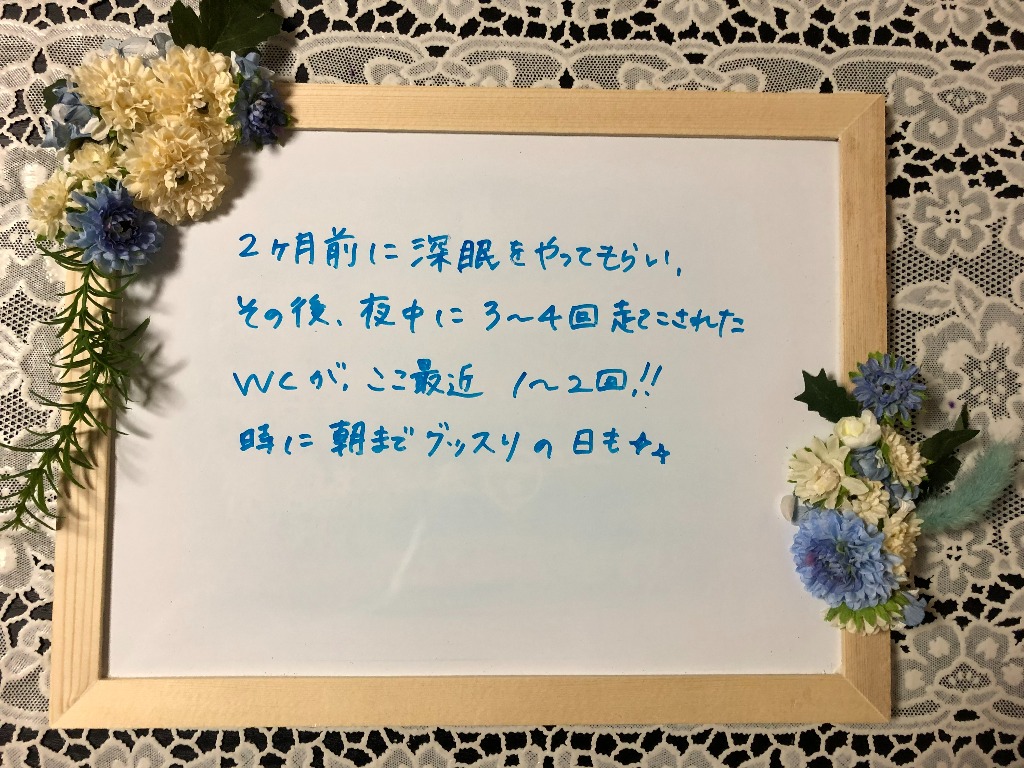 2ヶ月前に深眠をやってもらい、
その後、夜中に3〜4回起こされた
WCが、ここ最近 1〜2回!!
時に朝までグッスリの日も